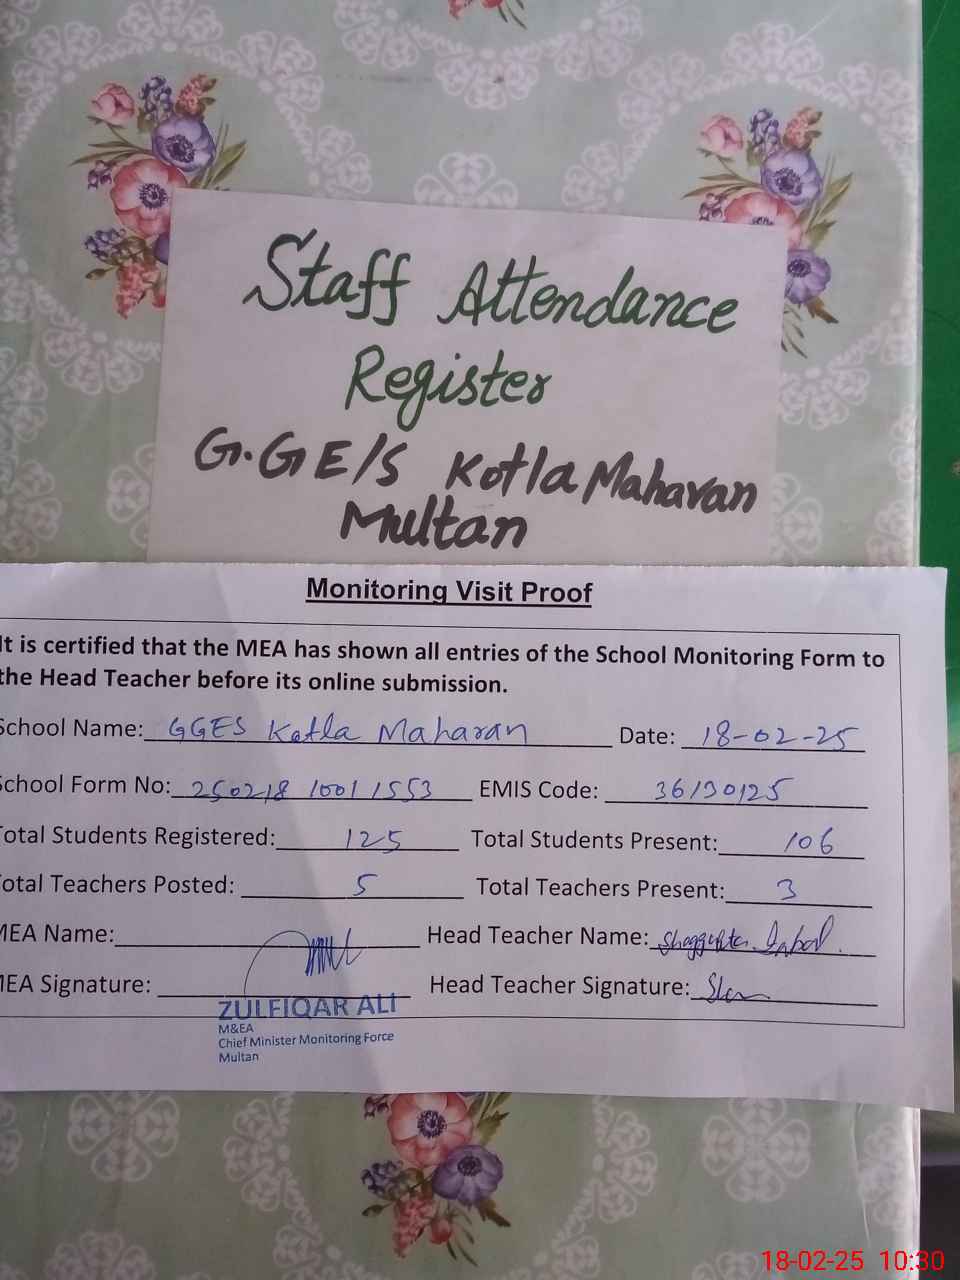 Staff Attendance
Register
G.GE/S Kotla Maharan
Multan
Monitoring Visit Proof
It is certified that the MEA has shown all entries of the School Monitoring Form to
the Head Teacher before its online submission.
School Name: GGES Kotla Maharan Date: 18-02-25
School Form No: 250218 10011553 EMIS Code: 36130125
Total Students Registered: 125 Total Students Present: 106
Total Teachers Posted: 5 Total Teachers Present: 3
MEA Name: Head Teacher Name: Shaggufta Iqbal.
MEA Signature: Head Teacher Signature:
ZULFIQAR ALI
M&EA
Chief Minister Monitoring Force
Multan
18-02-25 10:30